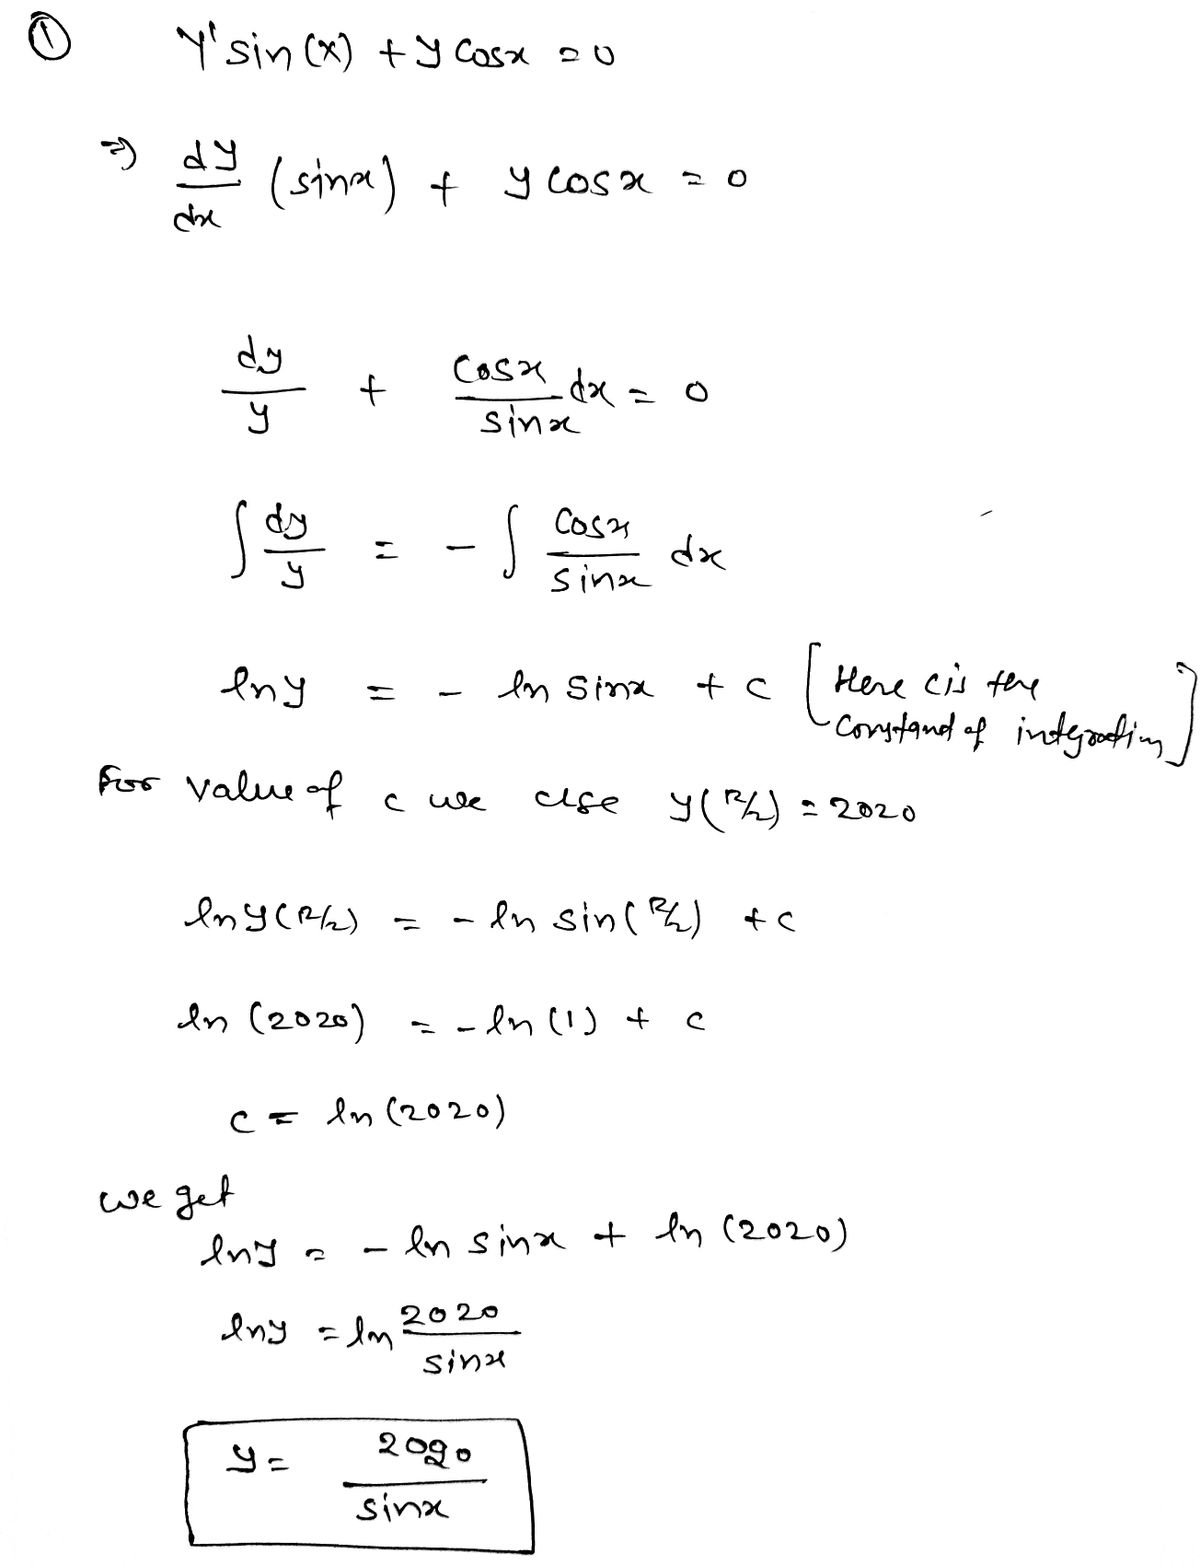 ① y' sin(x) + y cosx = 0
⇒ dy/dx (sinx) + y cosx = 0
dy/y + cosx/sinx dx = 0
∫ dy/y = - ∫ cosx/sinx dx
lny = - ln sinx + c [Here c is the
constand of integration]
For value of c we use y(π/2) = 2020
lny(π/2) = - ln sin(π/2) + c
ln (2020) = - ln (1) + c
c = ln (2020)
we get
lny = - ln sinx + ln (2020)
lny = ln 2020/sinx
y = 2020/sinx